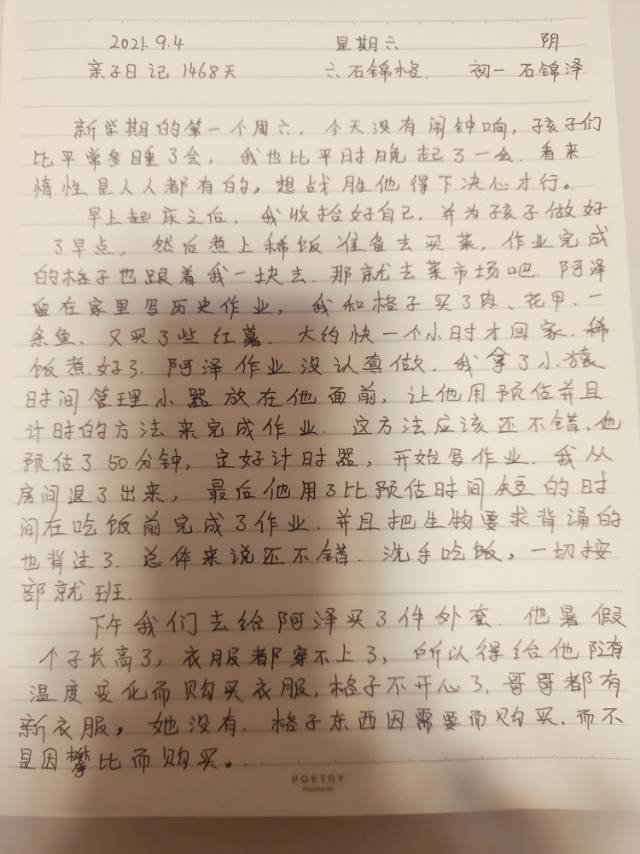 2021.9.4 星期六 阴
亲子日记 1468天 六 石锦格. 初一 石锦泽
新学期的第一个周六，今天没有闹钟响，孩子们
比平常多睡了会，我也比平时晚起了一会. 看来
惰性是人人都有的，想战胜他得下决心才行。
早上起床之后，我收拾好自己，并为孩子做好
了早点，然后煮上稀饭准备去买菜，作业完成
的格子也跟着我一块去. 那就去菜市场吧. 阿泽
留在家里写历史作业，我和格子买了肉、花甲、一
条鱼、又买了些红薯. 大约快一个小时才回家. 稀
饭煮好了. 阿泽作业没认真做. 我拿了小猿
时间管理小器放在他面前，让他用预估并且
计时的方法来完成作业. 这方法应该还不错，他
预估了50分钟，定好计时器，开始写作业. 我从
房间退了出来，最后他用了比预估时间短的时
间在吃饭前完成了作业. 并且把生物要求背诵的
也背过了. 总体来说还不错. 洗手吃饭，一切按
部就班.
下午我们去给阿泽买了件外套. 他暑假
个子长高了，衣服都穿不上了，所以得给他随着
温度变化而购买衣服，格子不开心了，哥哥都有
新衣服，她没有. 格子东西因需要而购买，而不
是因攀比而购买。
POETRY